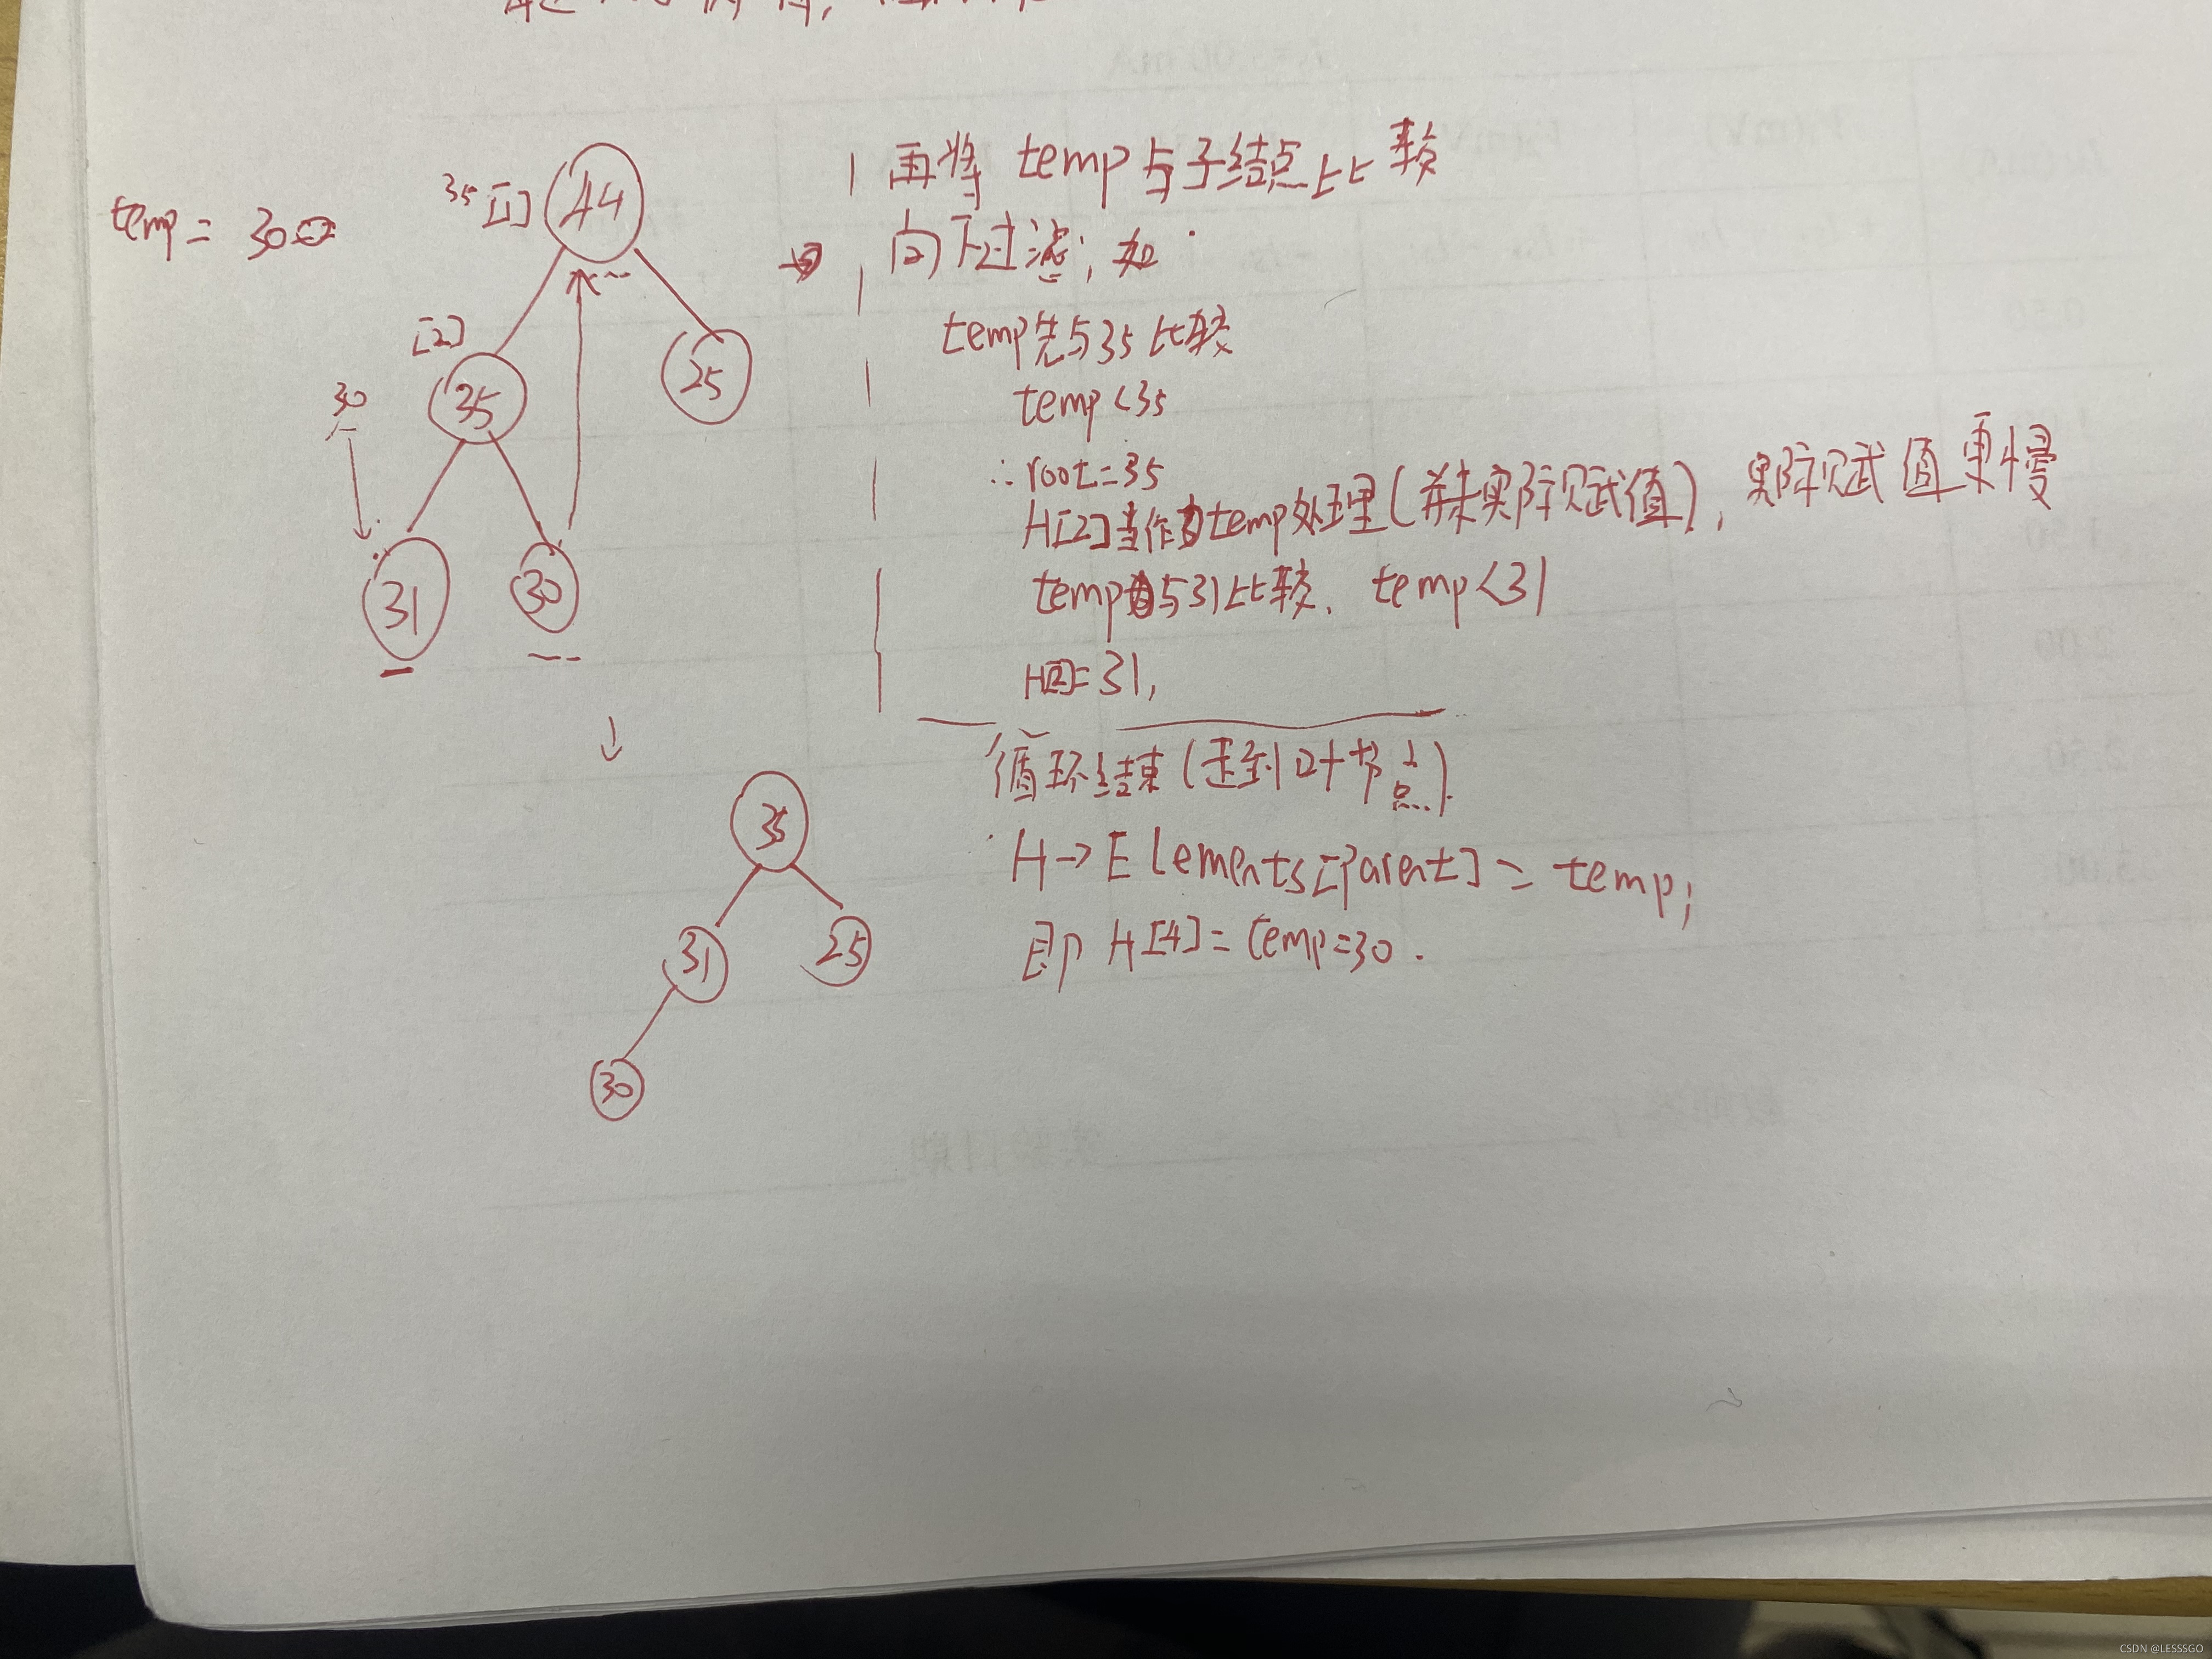 temp = 30
35 [1]
44
[2]
35
25
30
31
30
再将 temp 与子结点比较
向下过滤; 如
temp先与35比较
temp<35
∴root=35
H[2]当作为temp处理(并未实际赋值), 实际赋值更慢
temp与31比较, temp<31
H[2]=31,
循环结束(走到叶节点)
H→Elements[Parent] = temp;
即 H[4]=temp=30.
35
31
25
30
CSDN @LESSSGO